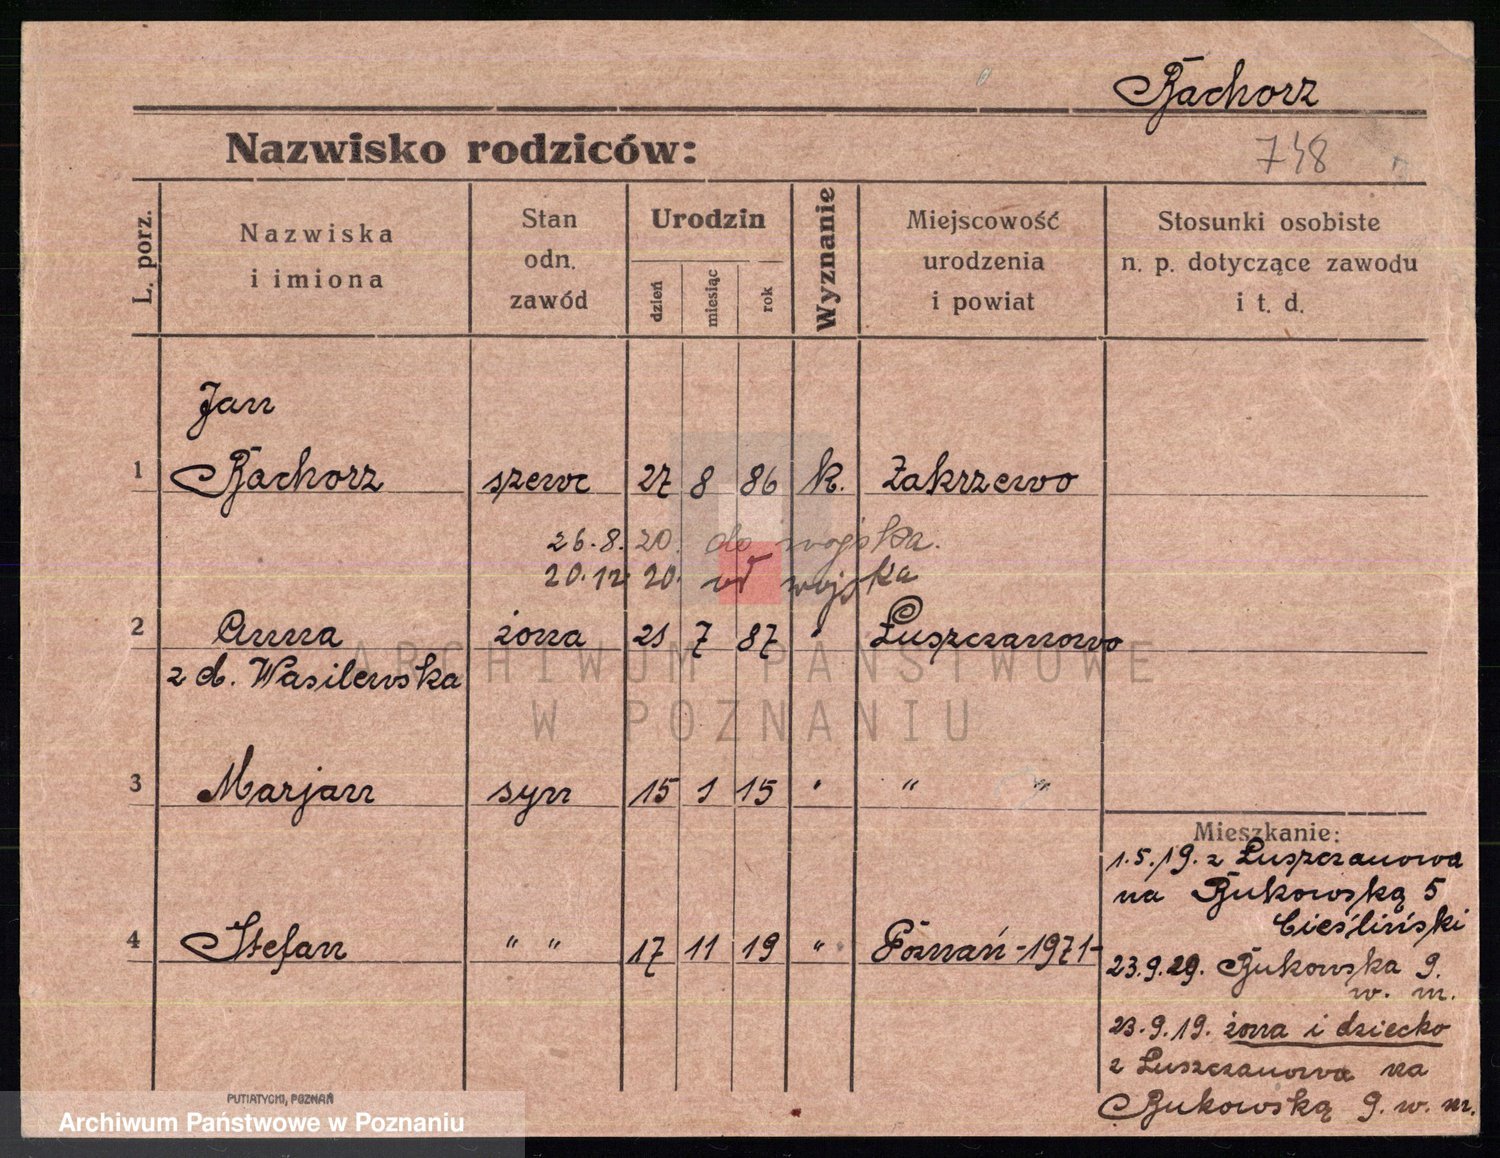 Bachorz
Nazwisko rodziców:
748
L. porz.
Nazwiska
i imiona
Stan
odn.
zawód
Urodzin
dzień
miesiąc
rok
Wyznanie
Miejscowość
urodzenia
i powiat
Stosunki osobiste
n. p. dotyczące zawodu
i t. d.
Jan
1 Bachorz szewc 27 8 86 k. Zakrzewo
26.8.20. do wojska.
20.12.20. od wojska
2 Anna żona 21 7 87 " Łuszczanowo
z d. Wasilewska
3 Marjan syn 15 1 15 " " "
4 Stefan " " 17 11 19 " Poznań -1971-
Mieszkanie:
1.5.19. z Łuszczanowa
na Bukowską 5
Cieśliński
23.9.29. Bukowska 9.
w. m.
23.9.19. żona i dziecko
z Łuszczanowa na
Bukowską 9. w. m.
PUTIATYCKI, POZNAŃ
ARCHIWUM PAŃSTWOWE
W POZNANIU
Archiwum Państwowe w Poznaniu